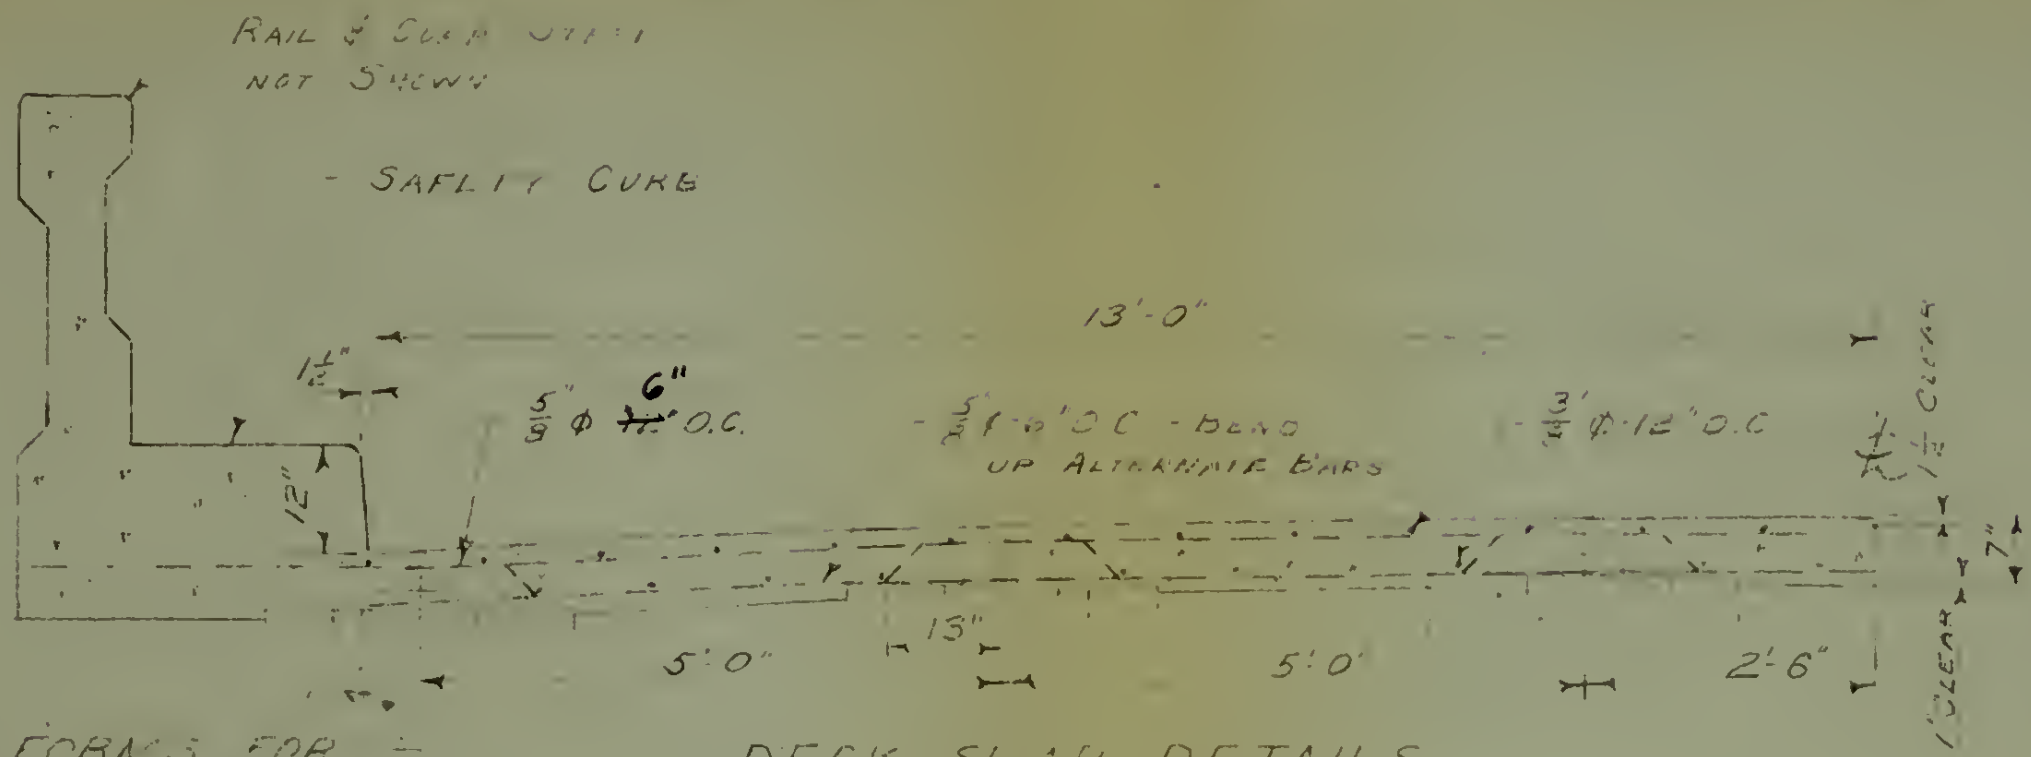 RAIL & CURB STEEL
NOT SHOWN
- SAFETY CURB
13'-0"
1½"
⅝"ϕ 6" O.C.
- ⅝"ϕ-6" O.C. - BEND
UP ALTERNATE BARS
ϕ-12" O.C.
1½" CLEAR
12"
7"
15"
5'-0"
5'-0"
2'-6"
1" CLEAR
FORMS FOR
DECK SLAB DETAILS